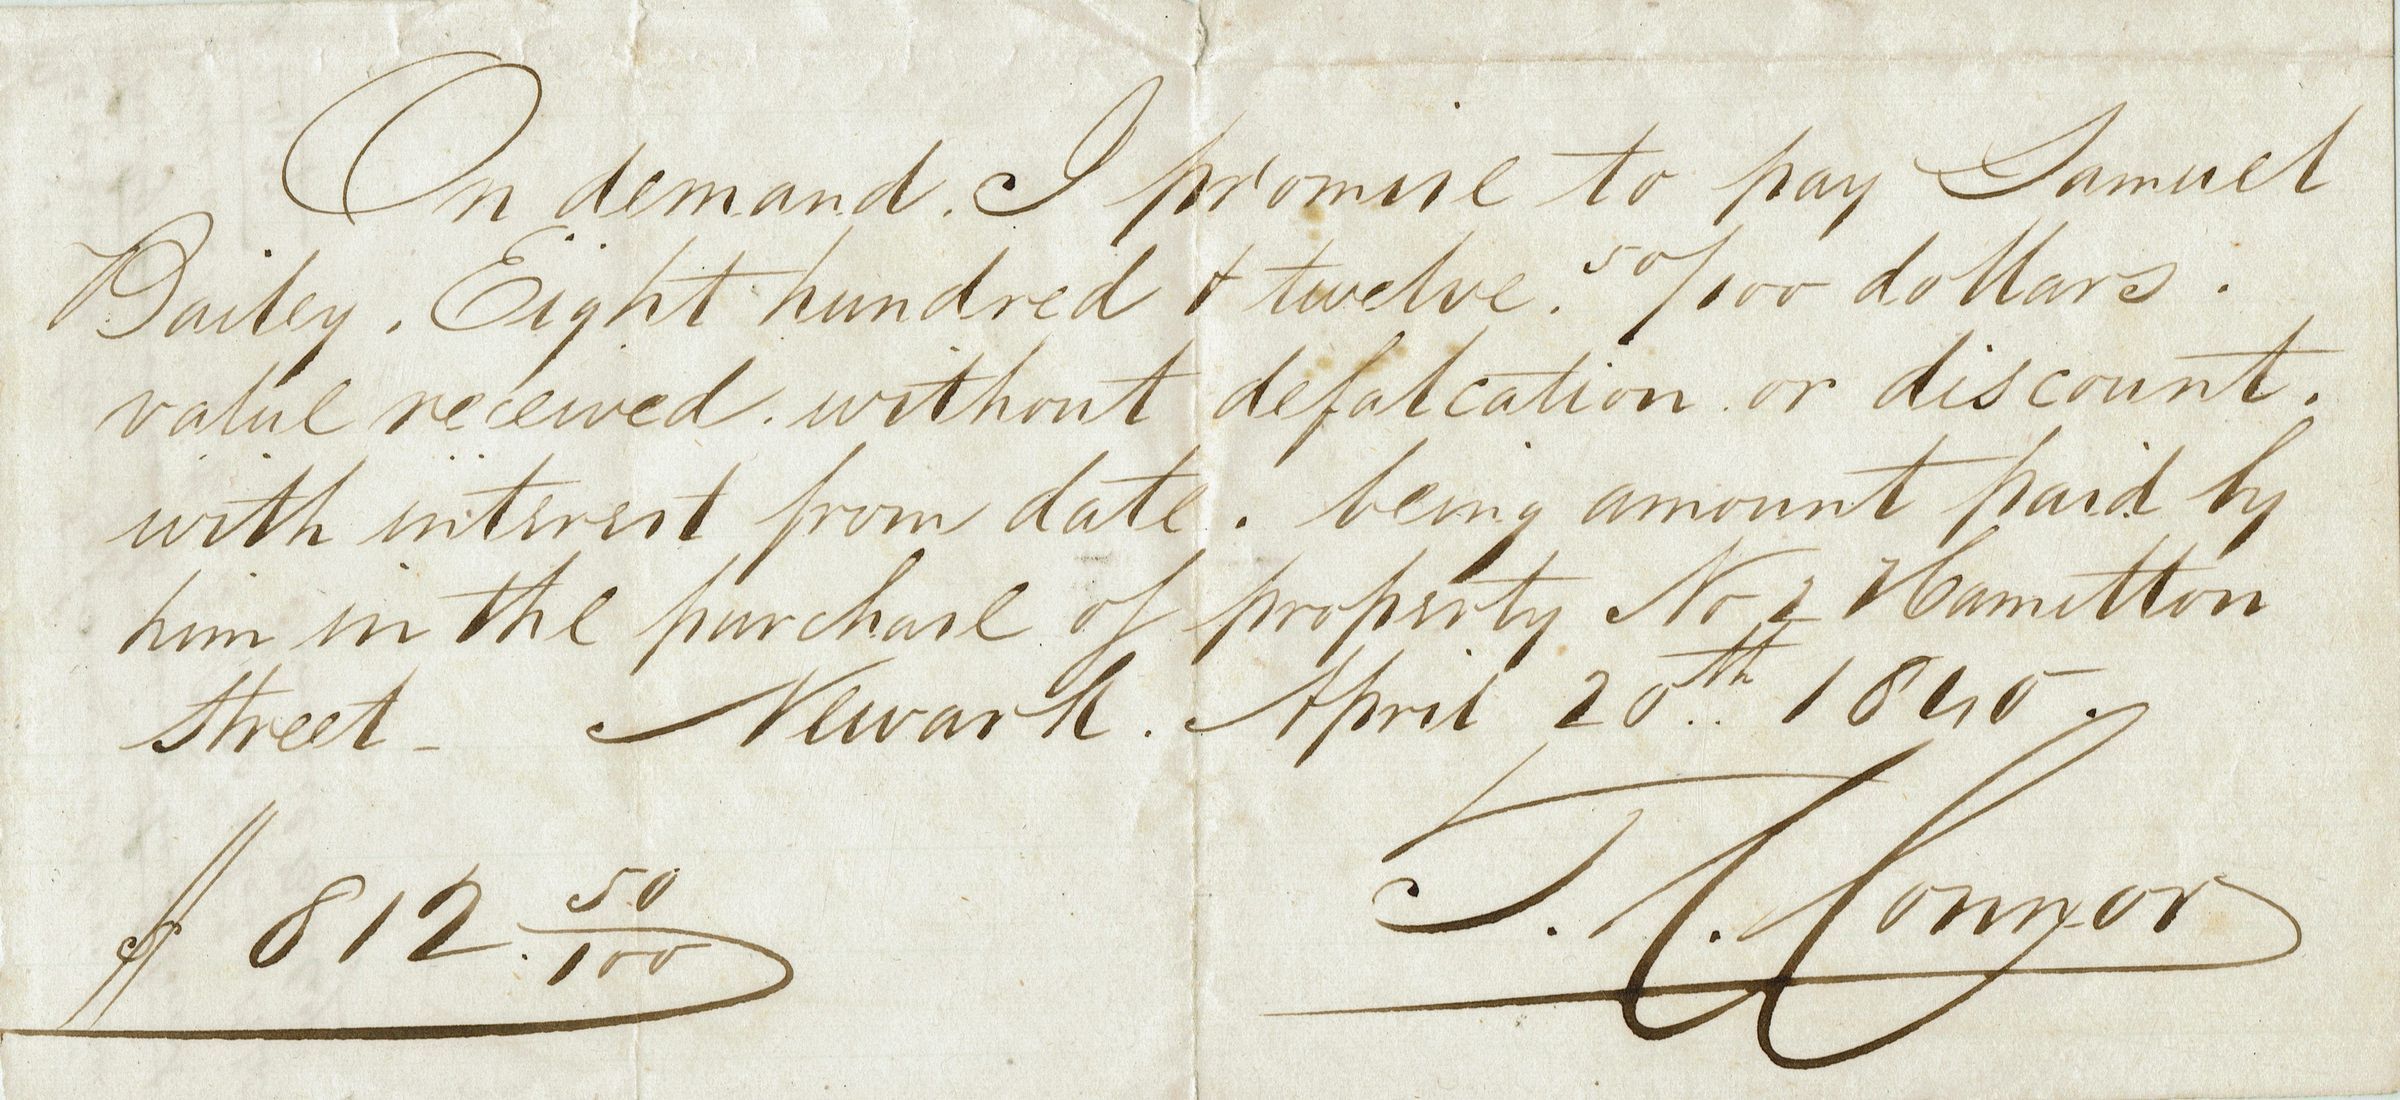 On demand. I promise to pay Samuel
Bailey. Eight hundred & twelve. 50/100 dollars.
value received. without defalcation or discount.
with interest from date. being amount paid by
him in the purchase of property No 2 Hamilton
Street - Newark. April 20th 1840.
$ 812. 50/100
T. C. Connor